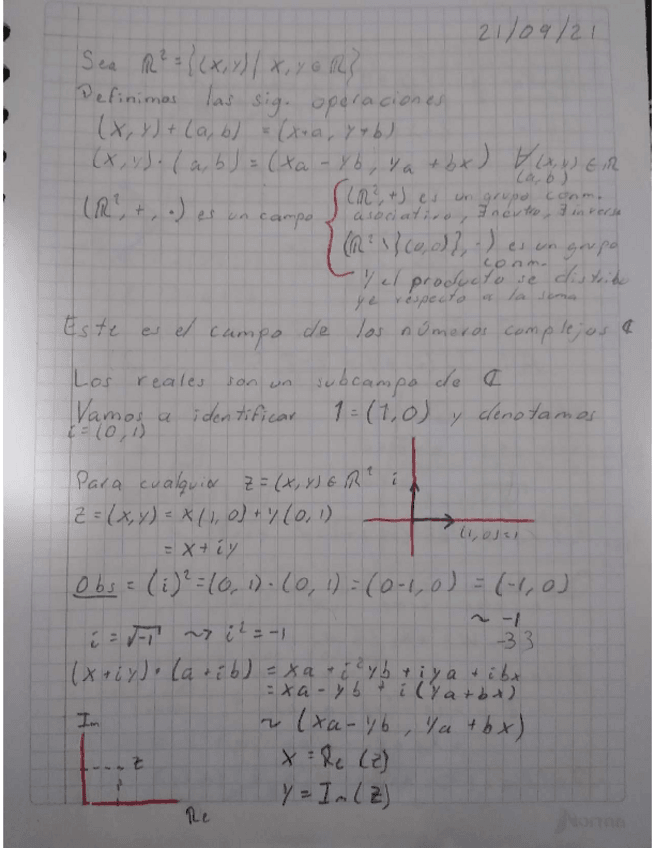 21/09/21
Sea ℝ² = {(x,y) | x,y ∈ ℝ}
Definimos las sig. operaciones
(x,y)+(a,b) = (x+a, y+b)
(x,y)·(a,b) = (xa - yb, ya + bx) ∀(x,y) ∈ ℝ
(a,b)
(ℝ², +, ·) es un campo
(ℝ², +) es un grupo conm.
asociativo, ∃ neutro, ∃ inverso
(ℝ² \ {(0,0)}, ·) es un grupo
conm.
y el producto se distribu
ye respecto a la suma
Este es el campo de los números complejos ℂ
Los reales son un subcampo de ℂ
Vamos a identificar 1=(1,0) y denotamos
i=(0,1)
Para cualquier z=(x,y) ∈ ℝ² i
z=(x,y) = x(1,0) + y(0,1)
(1,0)=1
= x+iy
Obs = (i)² = (0,1)·(0,1) = (0-1,0) = (-1,0)
~ -1
i = √-1 ~> i² = -1
(x+iy)·(a+ib) = xa + i²yb + iya + ibx
= xa - yb + i(ya+bx)
Im ~ (xa-yb, ya+bx)
z x = Re(z)
y = Im(z)
Re
Norma